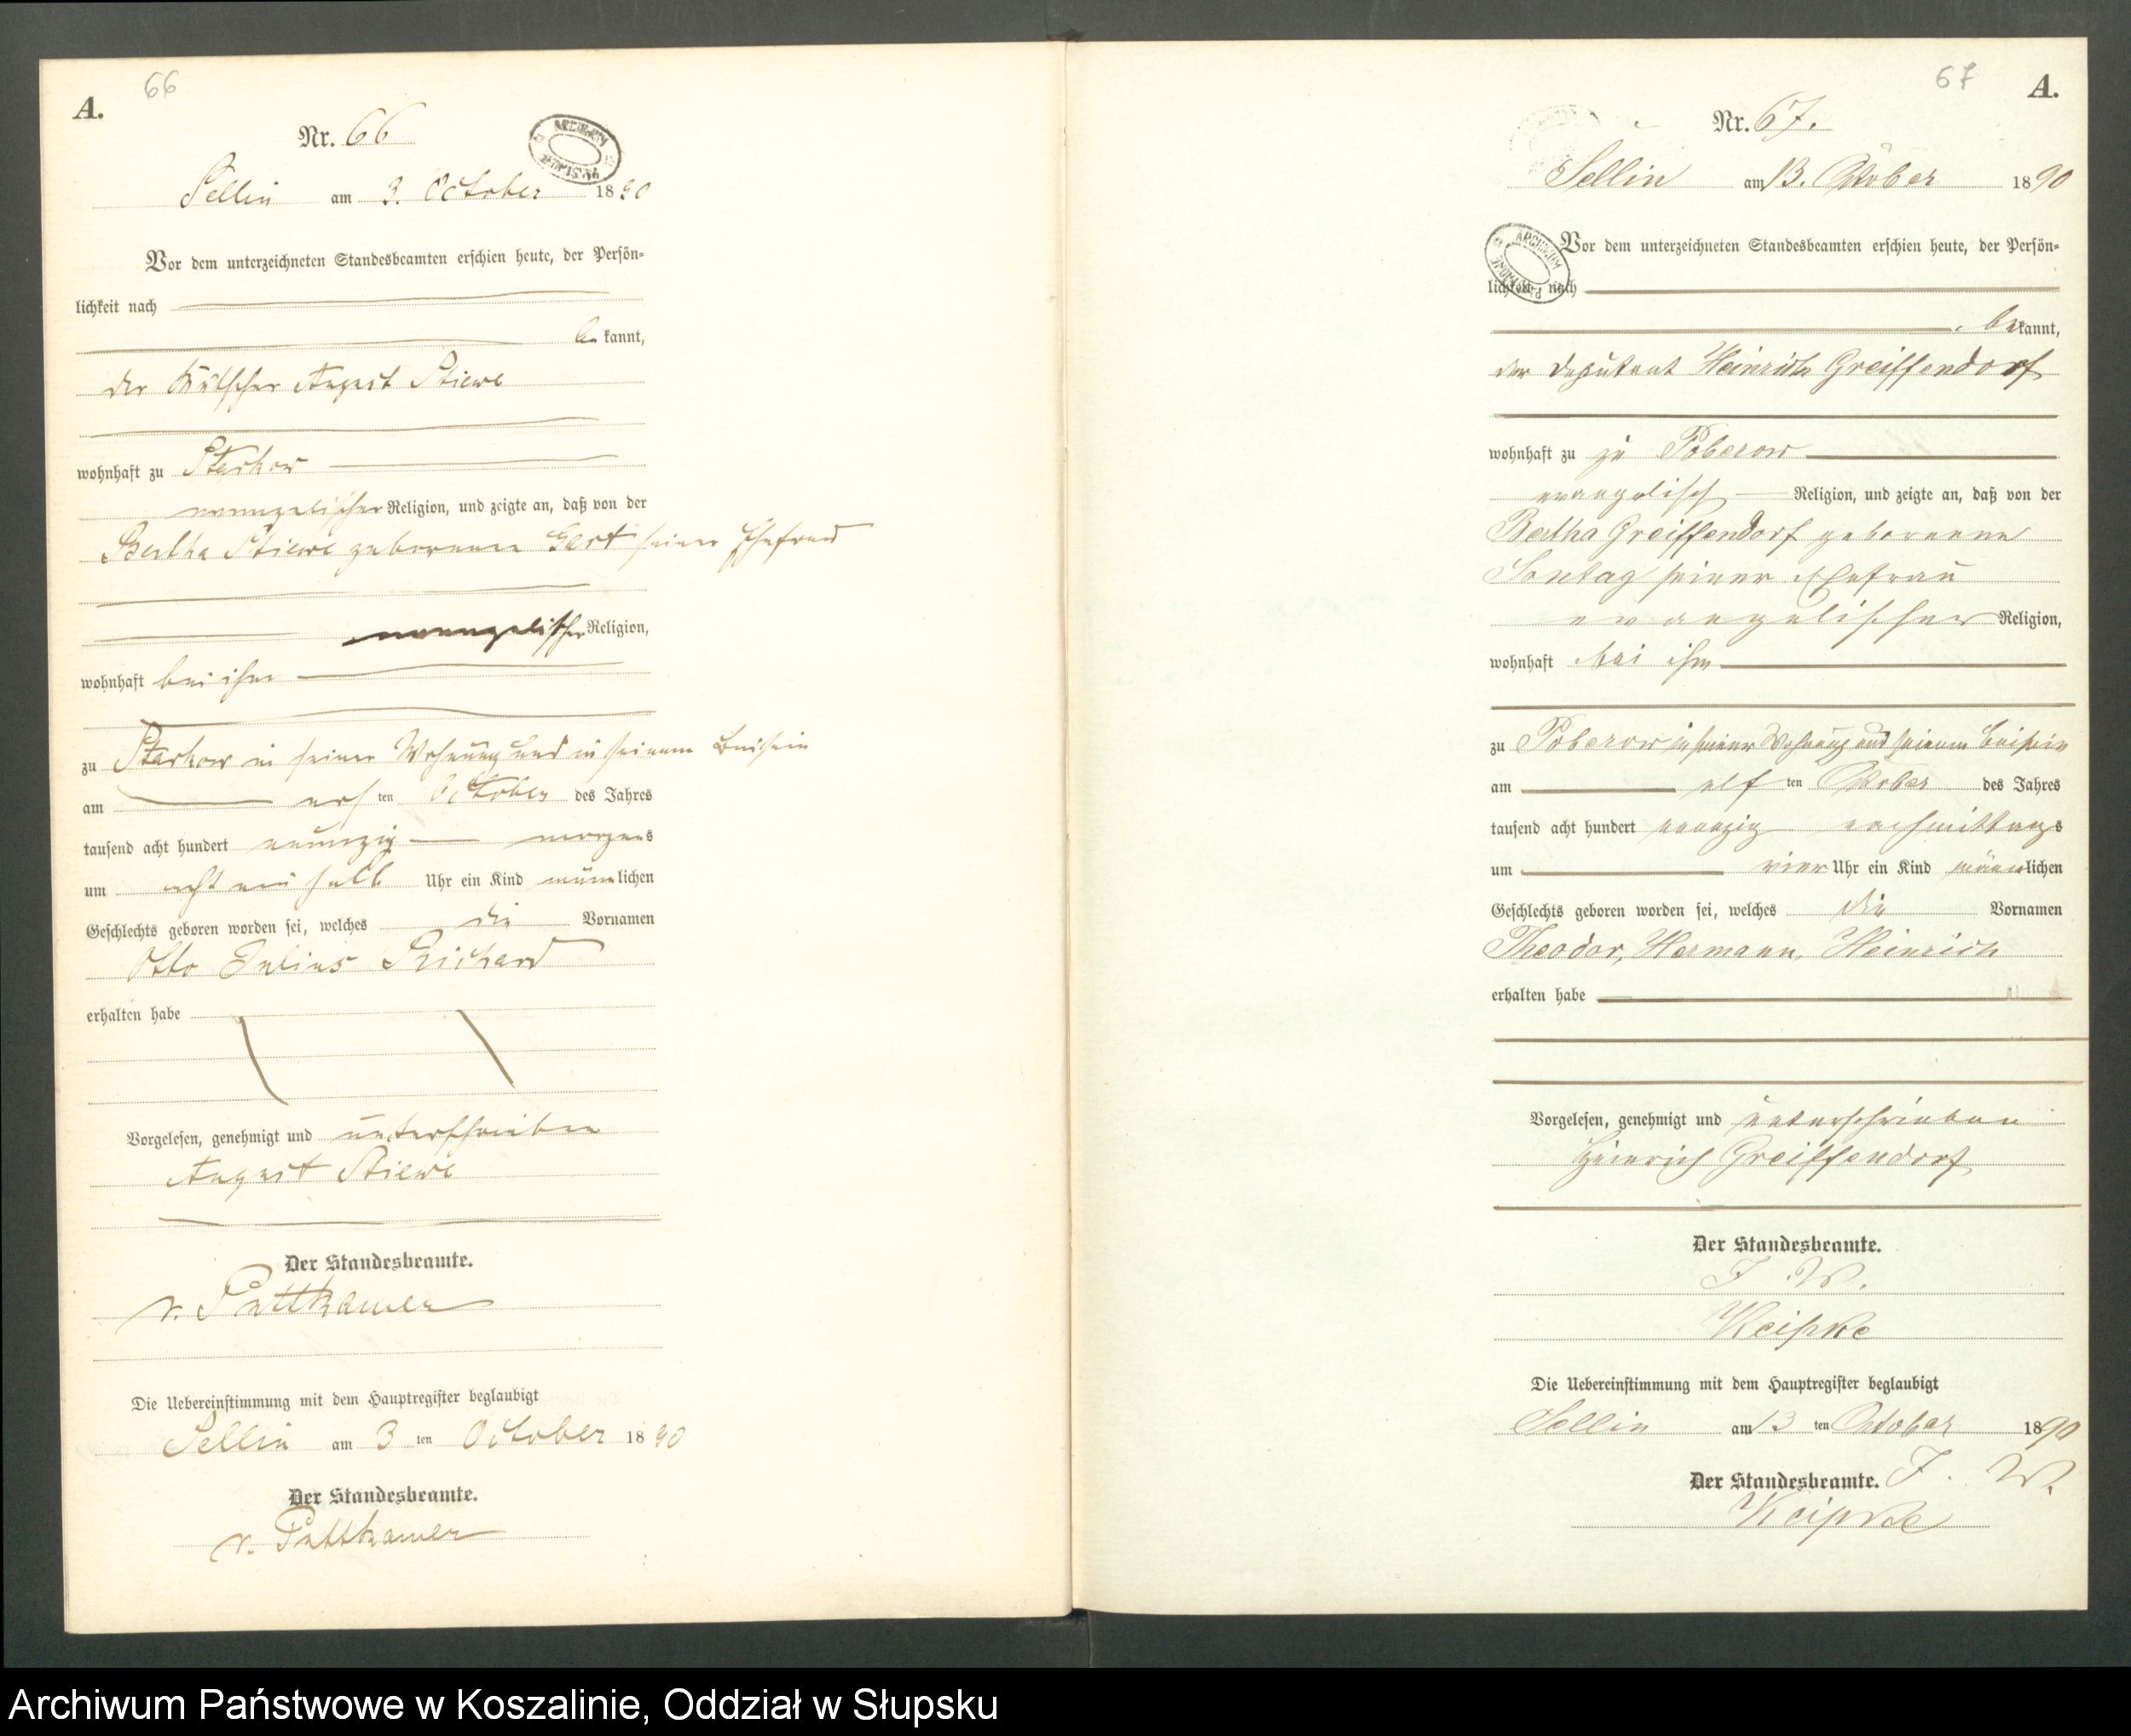 66
A.
Nr. 66
Sellin am 3. October 1890
Vor dem unterzeichneten Standesbeamten erschien heute, der Persön-
lichkeit nach
be kannt,
der Kutscher August Stiewe
wohnhaft zu Starkow
evangelischer Religion, und zeigte an, daß von der
Bertha Stiewe geborenen Gert seiner Ehefrau
evangelischer Religion,
wohnhaft bei ihm
zu Starkow in seiner Wohnung und in seinem Beisein
am ersten October des Jahres
tausend acht hundert neunzig morgens
um acht ein halb Uhr ein Kind männlichen
Geschlechts geboren worden sei, welches die Vornamen
Otto Julius Richard
erhalten habe
Vorgelesen, genehmigt und unterschrieben
August Stiewe
Der Standesbeamte.
v. Puttkamer
Die Uebereinstimmung mit dem Hauptregister beglaubigt
Sellin am 3 ten October 1890
Der Standesbeamte.
v. Puttkamer
67
A.
Nr. 67.
Sellin am 13. October 1890
ARCHIWUM
Vor dem unterzeichneten Standesbeamten erschien heute, der Persön-
lichkeit nach
bekannt,
der Deputant Heinrich Greiffendorf
wohnhaft zu zu Poberow
evangelisch Religion, und zeigte an, daß von der
Bertha Greiffendorf geborenen
Sontag seiner Ehefrau
evangelischer Religion,
wohnhaft bei ihm
zu Poberow in seiner Wohnung und seinem Beisein
am elf ten October des Jahres
tausend acht hundert neunzig nachmittags
um vier Uhr ein Kind männlichen
Geschlechts geboren worden sei, welches die Vornamen
Theodor, Hermann, Heinrich
erhalten habe
Vorgelesen, genehmigt und unterschrieben
Heinrich Greiffendorf
Der Standesbeamte.
J. V.
Keipke
Die Uebereinstimmung mit dem Hauptregister beglaubigt
Sellin am 13 ten October 1890
Der Standesbeamte. J. V.
Keipke
Archiwum Państwowe w Koszalinie, Oddział w Słupsku